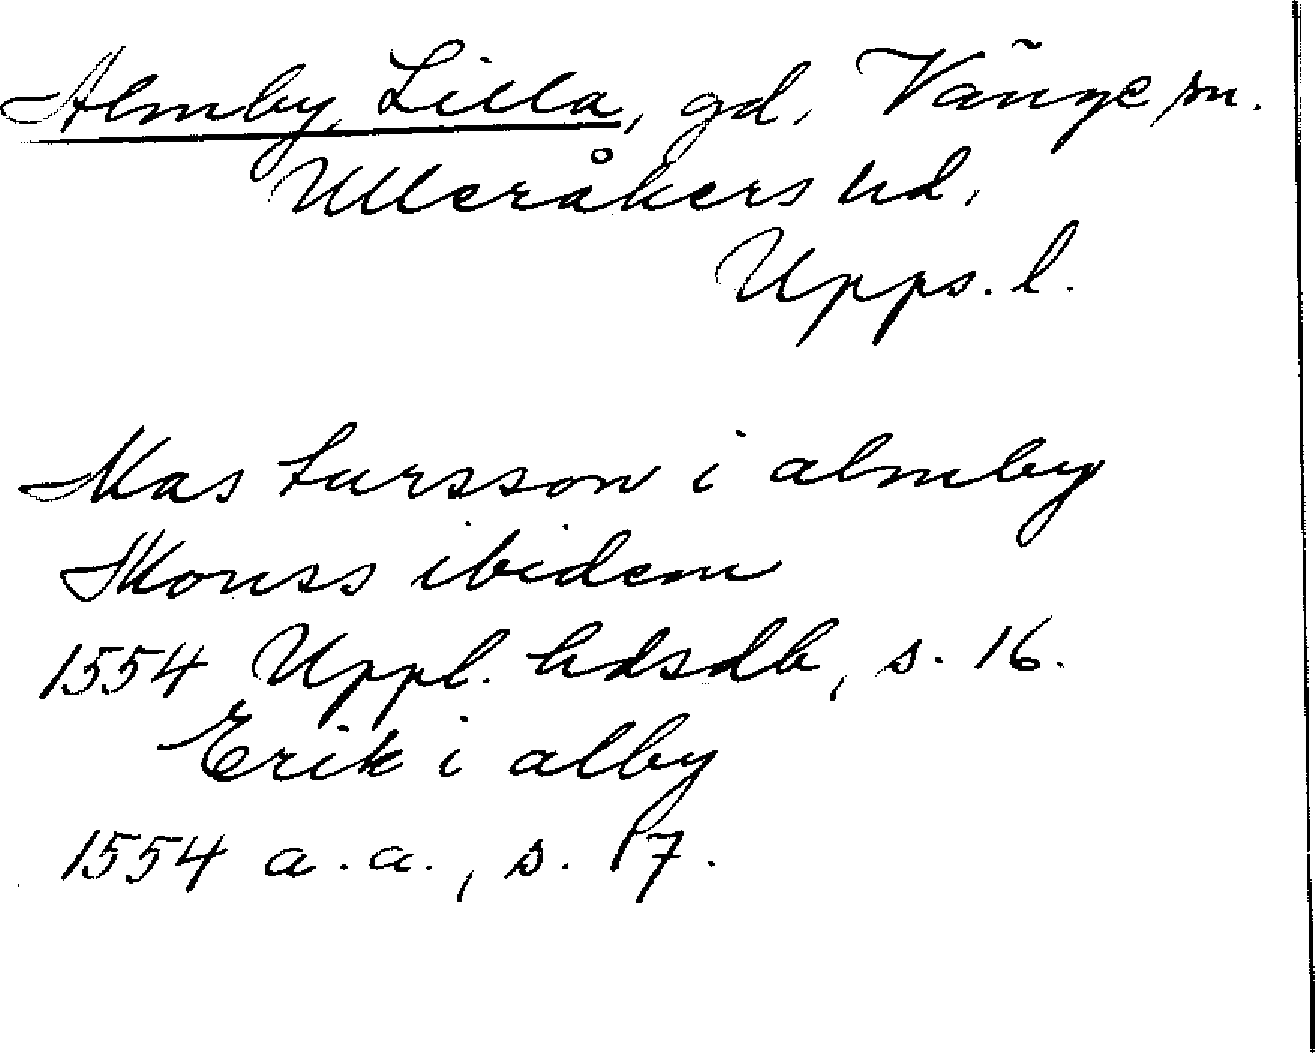 Almby, Lilla, gd, Vänge sn.
Ulleråkers hd,
Upps. l.
Mas Larsson i almby
Monss ibidem
1554 Uppl. hdsdb, s. 16.
Erik i alby
1554 a.a., s. 17.